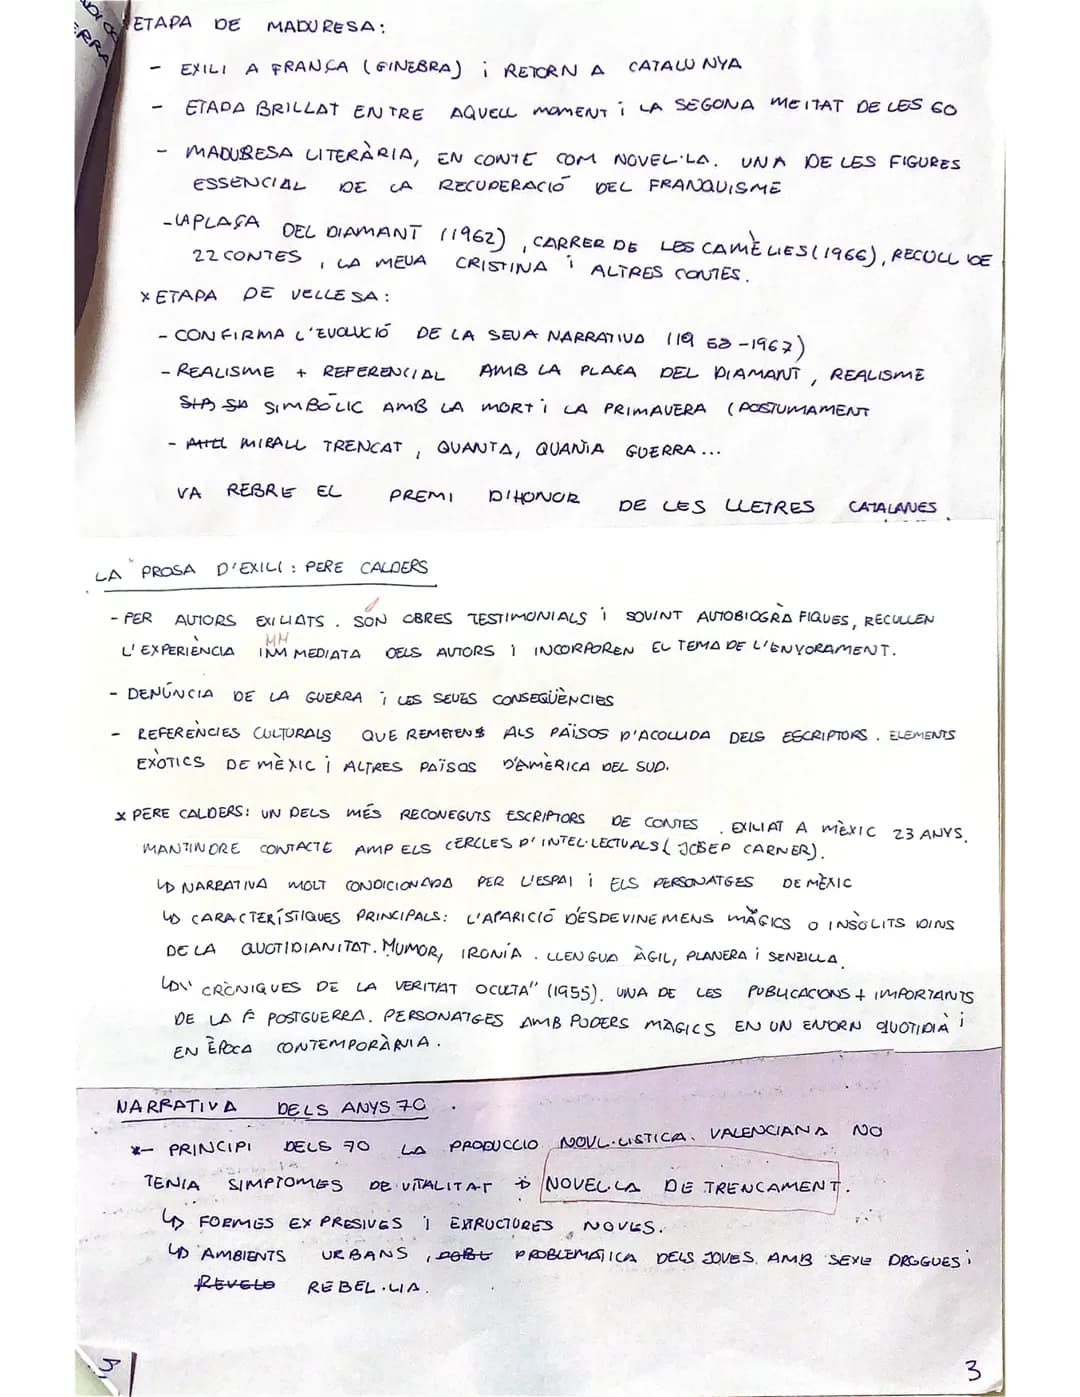 ETAPA DE MADURESA:
- EXILI A FRANÇA (GINEBRA) i RETORN A CATALUNYA
- ETAPA BRILLAT ENTRE AQUELL MOMENT i LA SEGONA MEITAT DE LES 60
- MADURESA LITERÀRIA, EN CONTE COM NOVEL·LA. UNA DE LES FIGURES
ESSENCIAL DE LA RECUPERACIÓ DEL FRANQUISME
- LA PLAÇA DEL DIAMANT (1962), CARRER DE LES CAMÈLIES (1966), RECULL DE
22 CONTES, LA MEUA CRISTINA i ALTRES CONTES.
x ETAPA DE VELLESA:
- CONFIRMA L'EVOLUCIÓ DE LA SEUA NARRATIVA (1963-1967)
- REALISME + REFERENCIAL AMB LA PLAÇA DEL DIAMANT, REALISME
SIMBÒLIC AMB LA MORT i LA PRIMAVERA (POSTUMAMENT
- MIRALL TRENCAT, QUANTA, QUANTA GUERRA...
VA REBRE EL PREMI D'HONOR DE LES LLETRES CATALANES
LA PROSA D'EXILI: PERE CALDERS
- PER AUTORS EXILIATS. SÓN OBRES TESTIMONIALS i SOVINT AUTOBIOGRÀFIQUES, RECULLEN
L'EXPERIÈNCIA IMMEDIATA DELS AUTORS I INCORPOREN EL TEMA DE L'ENYORAMENT.
- DENÚNCIA DE LA GUERRA i LES SEUES CONSEQÜÈNCIES
- REFERÈNCIES CULTURALS QUE REMETENS ALS PAÏSOS D'ACOLLIDA DELS ESCRIPTORS. ELEMENTS
EXÒTICS DE MÈXIC i ALTRES PAÏSOS D'AMÈRICA DEL SUD.
x PERE CALDERS: UN DELS MÉS RECONEGUTS ESCRIPTORS DE CONTES. EXILIAT A MÈXIC 23 ANYS.
MANTINDRE CONTACTE AMP ELS CERCLES D'INTEL·LECTUALS (JOSEP CARNER).
↳ NARRATIVA MOLT CONDICIONADA PER L'ESPAI i ELS PERSONATGES DE MÈXIC
↳ CARACTERÍSTIQUES PRINCIPALS: L'APARICIÓ D'ESDEVINEMENS MÀGICS O INSÒLITS DINS
DE LA QUOTIDIANITAT. HUMOR, IRONÍA. LLENGUA ÀGIL, PLANERA i SENZILLA.
↳ "CRÒNIQUES DE LA VERITAT OCULTA" (1955). UNA DE LES PUBLICACIONS + IMPORTANTS
DE LA POSTGUERRA. PERSONATGES AMB PODERS MÀGICS EN UN ENTORN QUOTIDIÀ i
EN ÈPOCA CONTEMPORÀNIA.
NARRATIVA DELS ANYS 70.
*- PRINCIPI DELS 70 LA PRODUCCIO NOVL·LISTICA VALENCIANA NO
TENIA SIMPTOMES DE VITALITAT → NOVEL·LA DE TRENCAMENT.
↳ FORMES EXPRESIVES I EXTRUCTURES NOVES.
↳ AMBIENTS URBANS, PROBLEMATICA DELS JOVES AMB SEXE DROGUES i
REBEL·LIA.
3